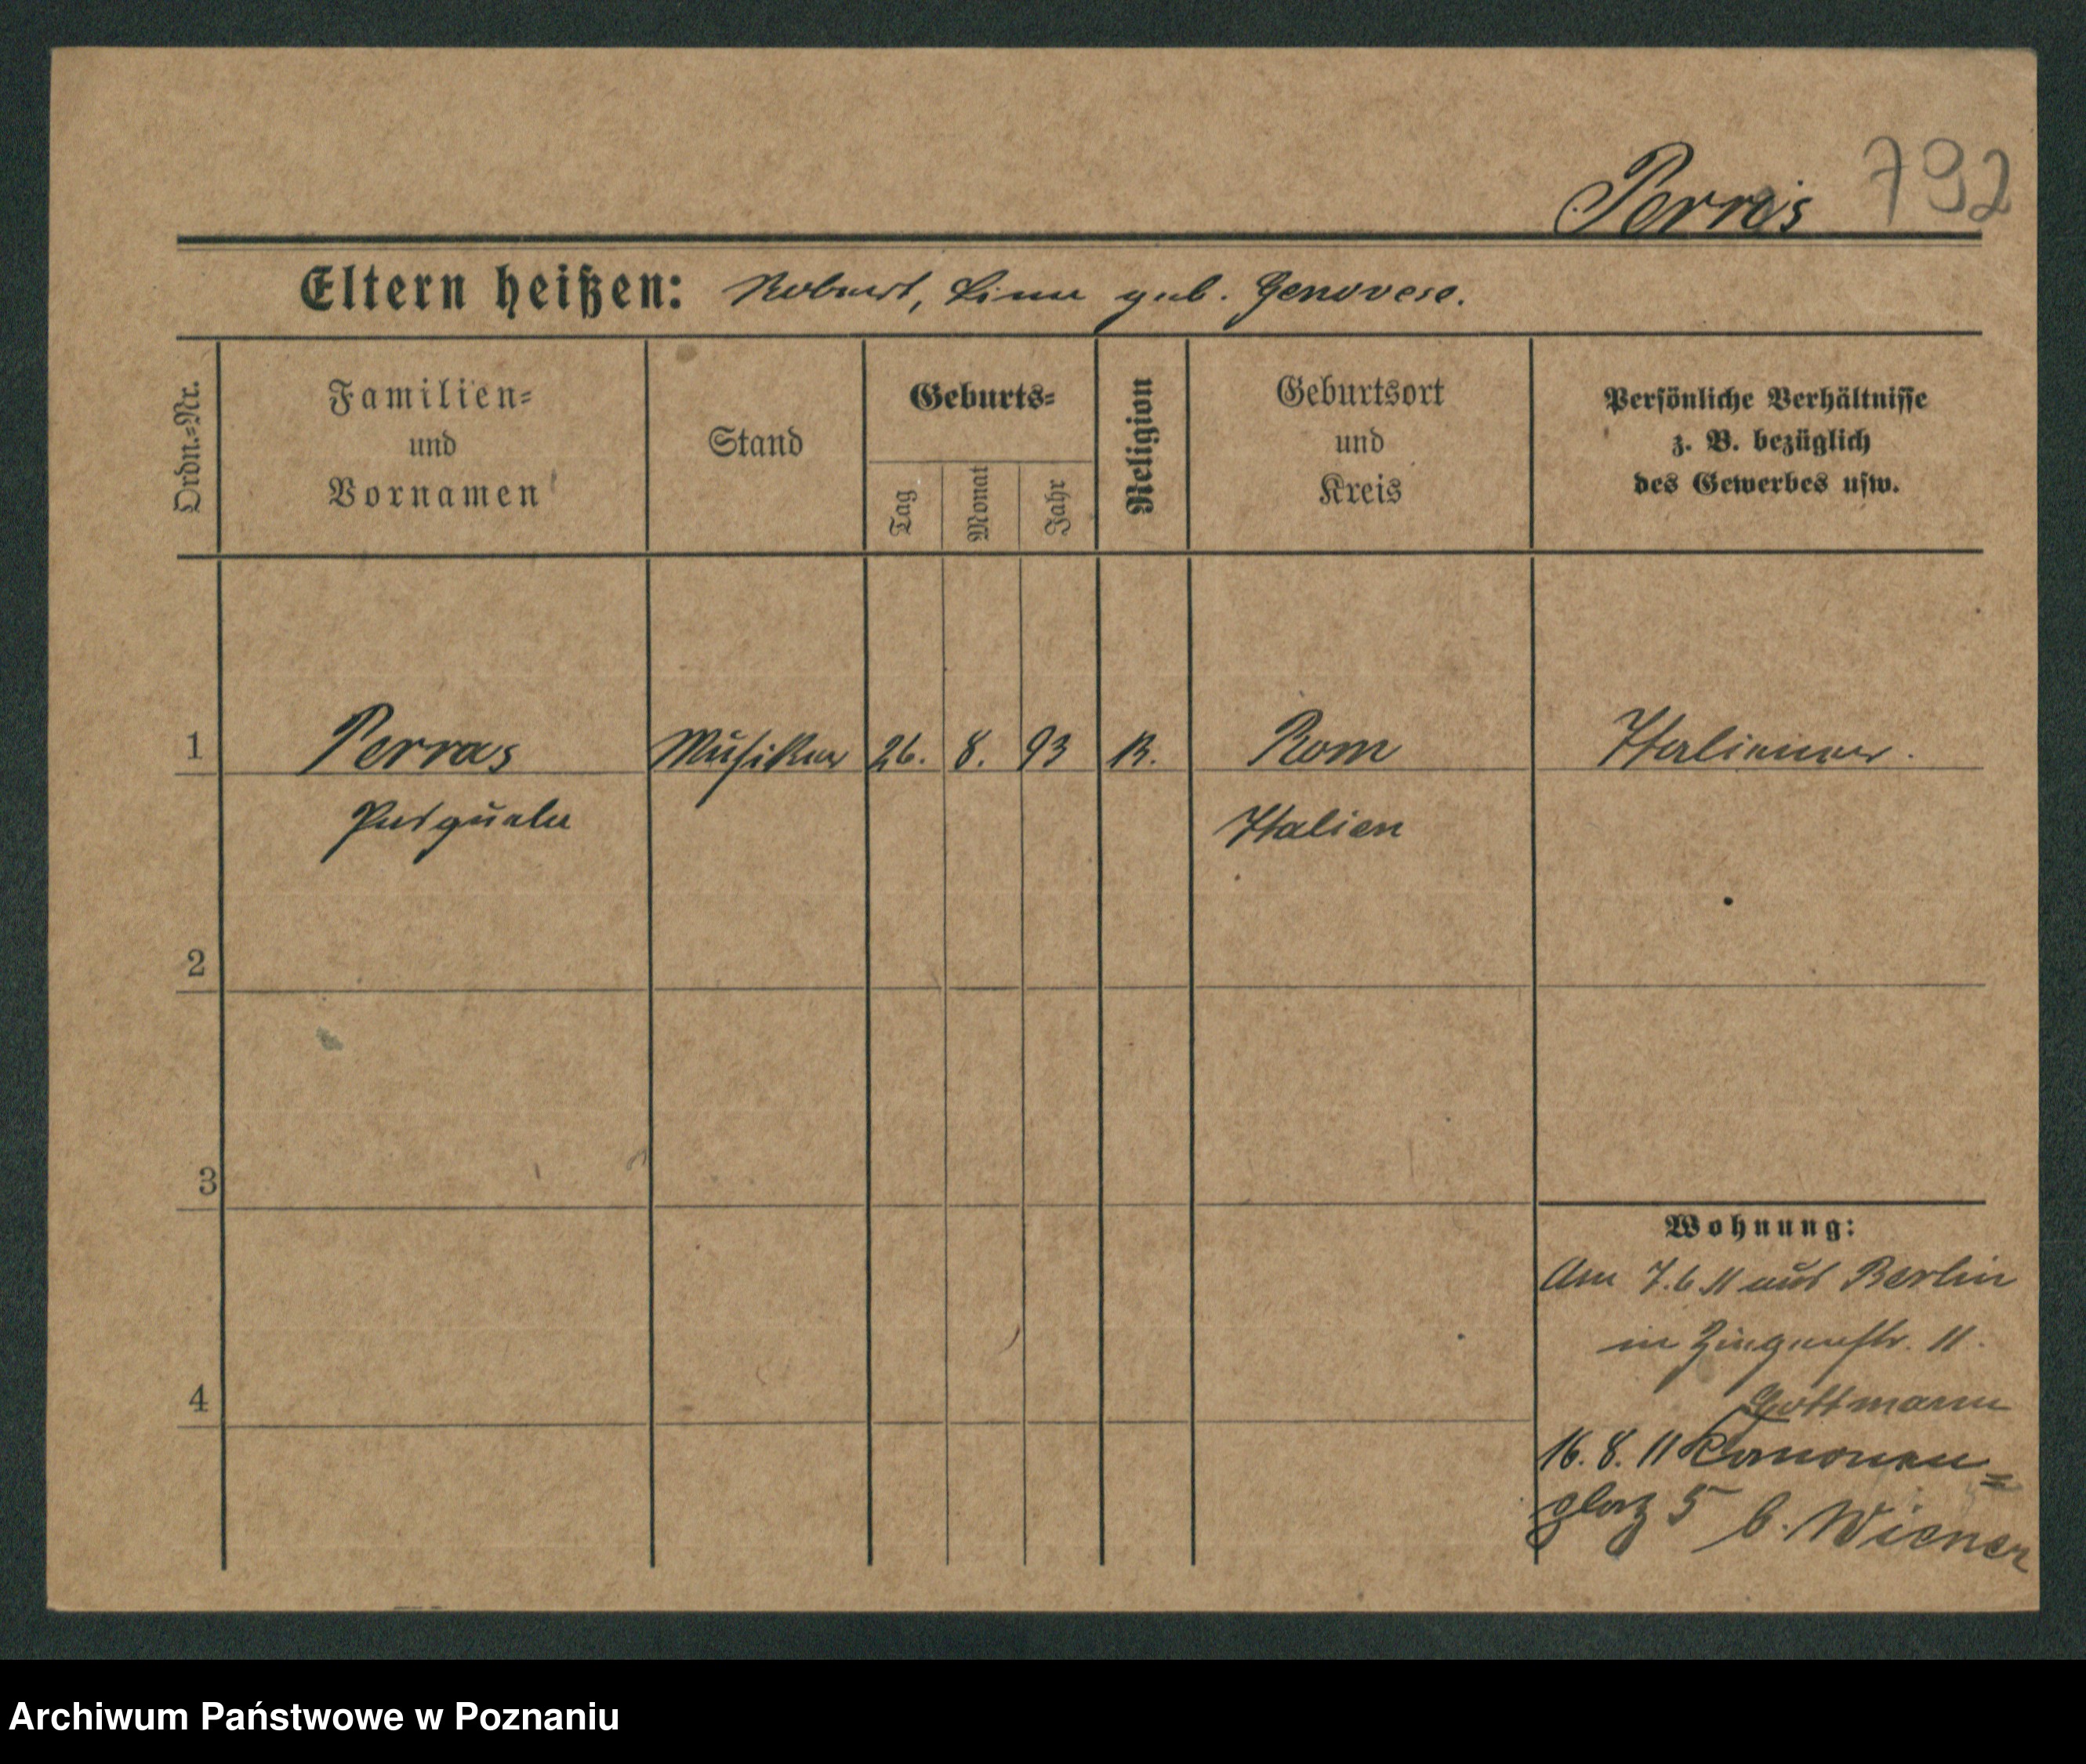 Perras 792
Eltern heißen: Robert, Lina geb. Genovese.
Ordn.=Nr.
Familien=
und
Vornamen
Stand
Geburts=
Tag
Monat
Jahr
Religion
Geburtsort
und
Kreis
Persönliche Verhältnisse
z. B. bezüglich
des Gewerbes usw.
1 Perras Musiker 26. 8. 93 K. Rom Italiener.
Pasquale Italien
2
3
Wohnung:
Am 7.6.11 aus Berlin
in Ziegenstr. 11.
4
Guttmann
16. 8. 11 Kanonen=
platz 5 b. Wiener
Archiwum Państwowe w Poznaniu